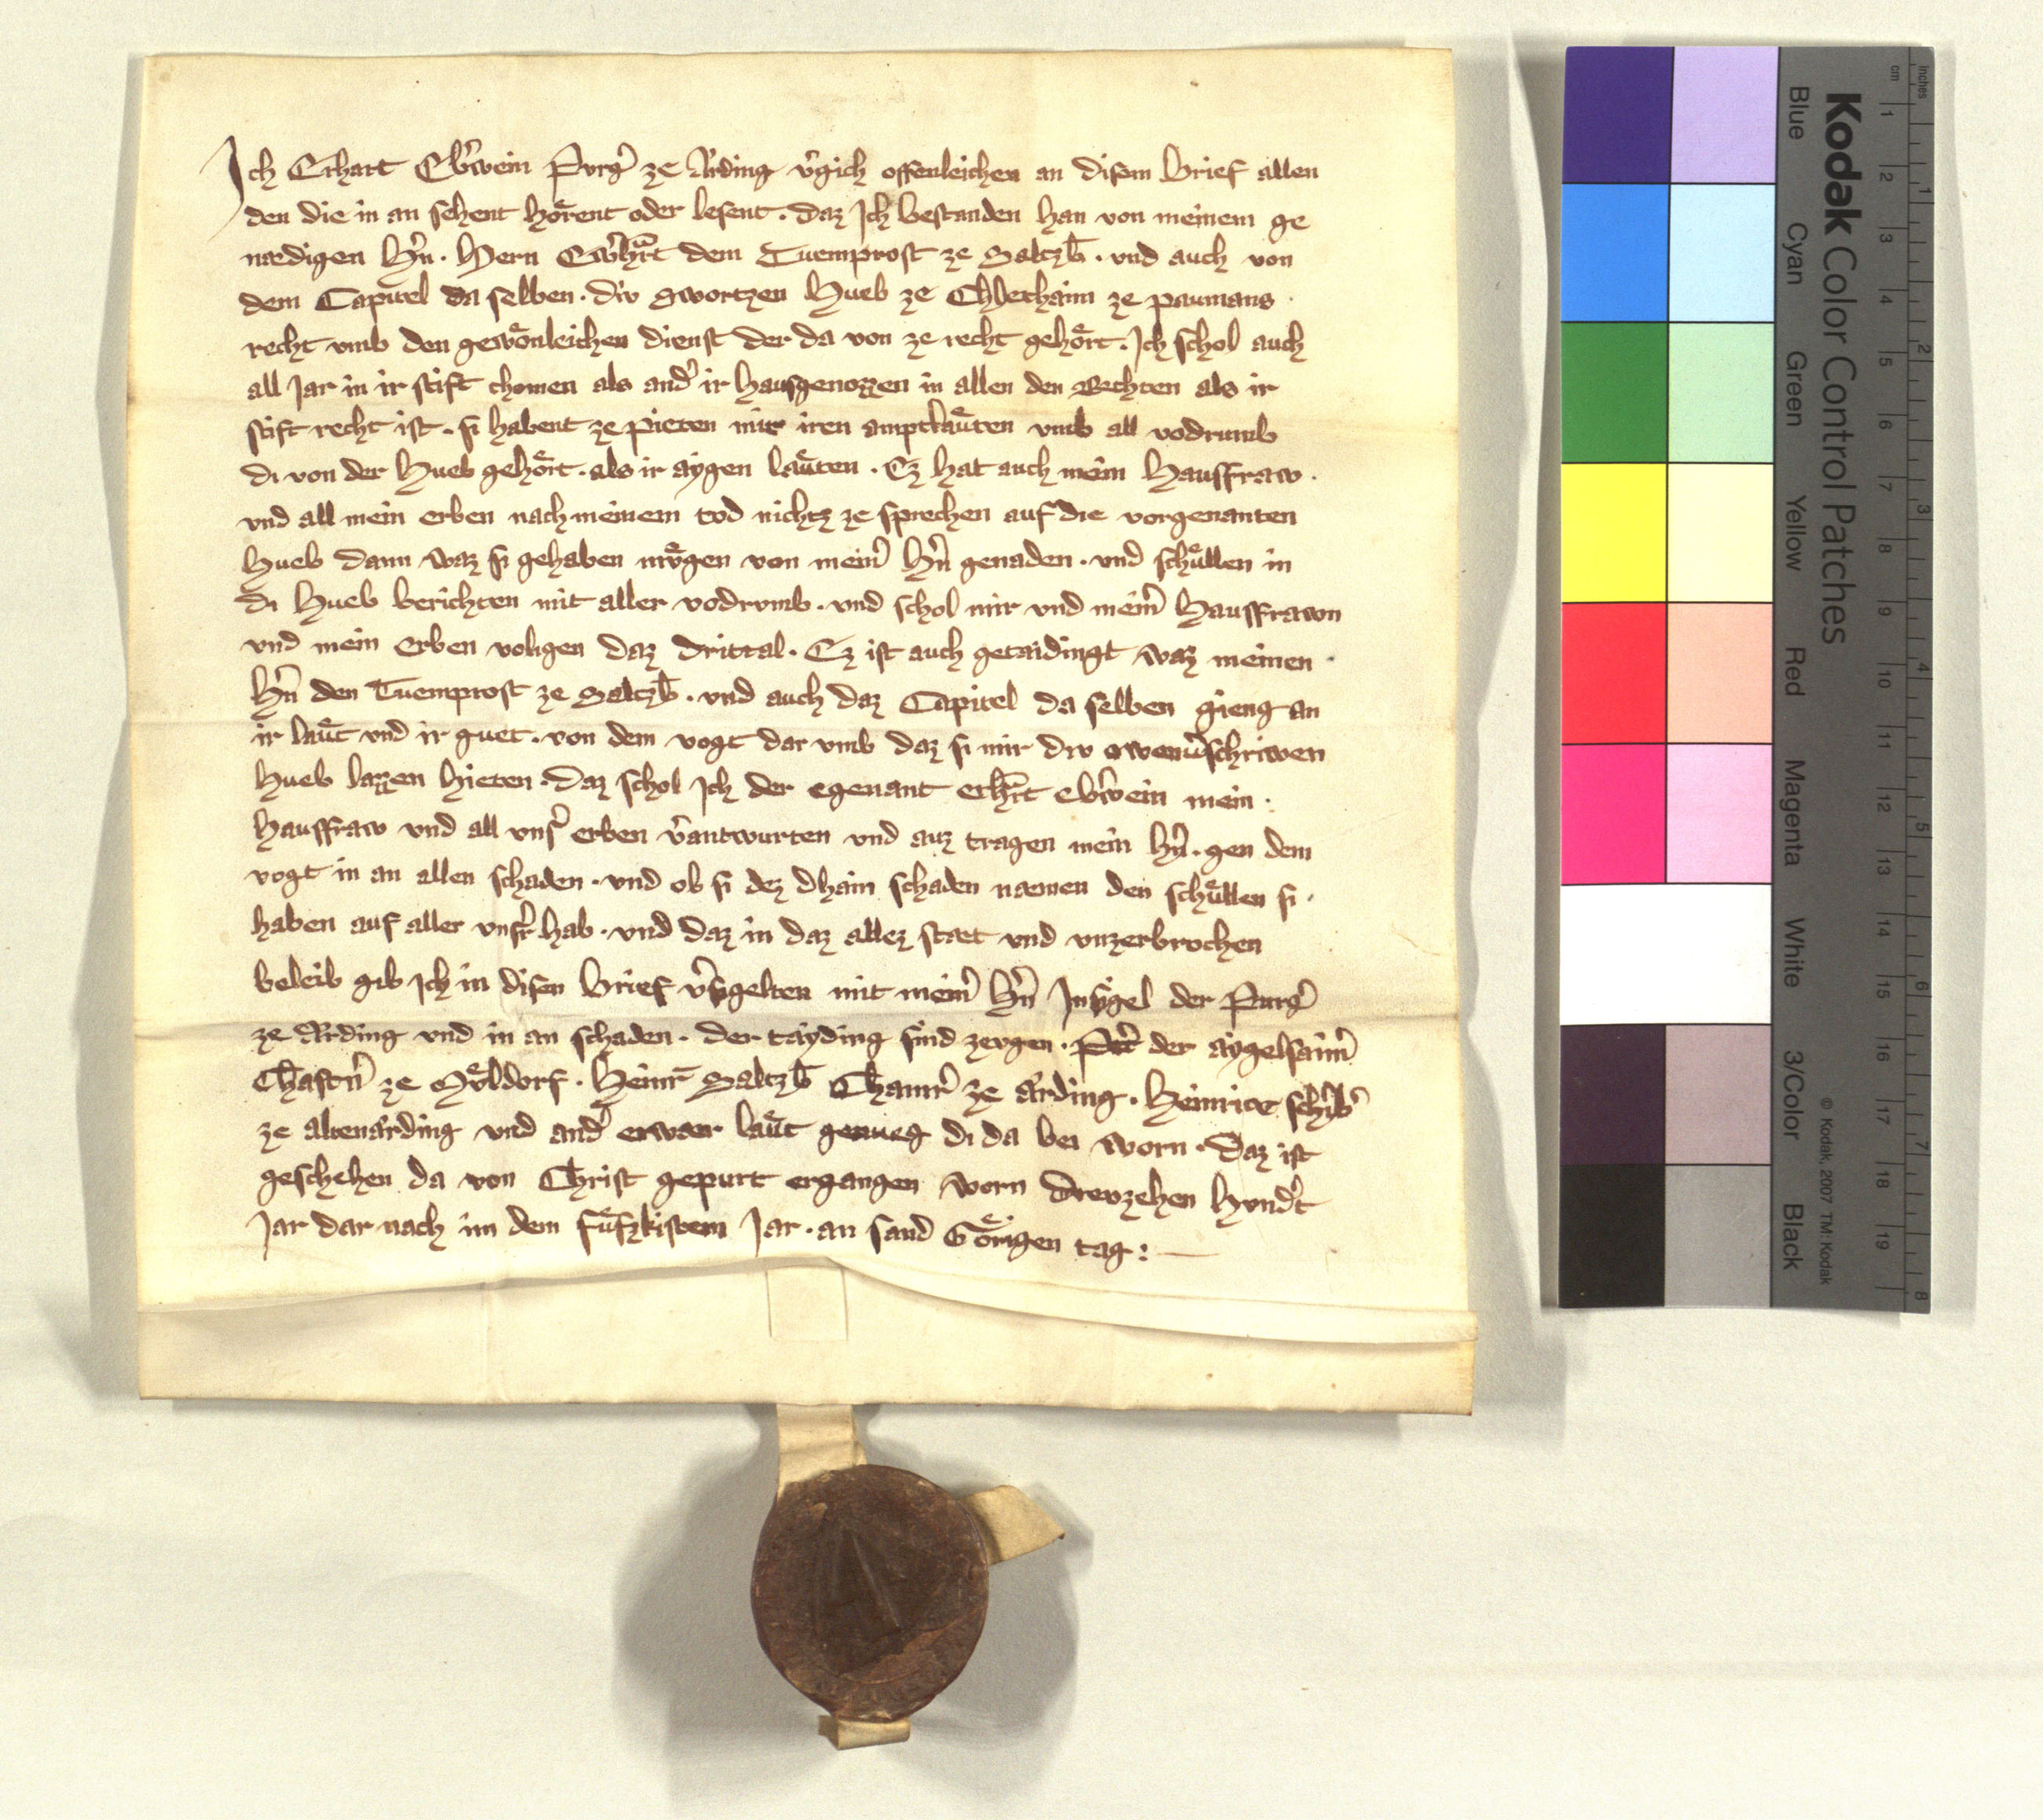 Ich Erhart Ebˀwein Purgˀ ze Aͤrding vˀgich offenleichen an disem brief allen
den die in an sehent hoͤrent oder lesent · daz Ich bestanden han von meinem ge
nædigen hˀn · Hern dem Tuemprost ze Saltzb̄ · vnd auch von
dem Capitel da selben · div Hueb ze ze paumans ·
recht vmb den gewoͤnleichen dienst der da von ze recht gehoͤrt · Ich schol auch
all Jar in ir stift chomen als andˀ ir hausgenozzen in allen den Rechten als ir
stift recht ist · si habent ze pieten mit iren amptlaͤuten vmb all vodrumb
di von der Hueb gehoͤrt · als ir aygen laͤuten · Ez hat auch mein Hausfraw ·
vnd all mein erben nach meinem tod nichtz ze sprechen auf die vorgenanten
Hueb dann waz si gehaben muͤgen von meinˀ hˀn genaden · vnd schuͤllen in
di Hueb berichten mit aller vodrvmb · vnd schol mir vnd meinˀ Hausfrawn
vnd mein erben voligen daz drittal · Ez ist auch getaidingt waz meinen ·
hˀn den Tuemprost ze Saltzb̄ · vnd auch daz Capitel da selben gieng an
ir laͤut vnd ir guet · von dem vogt dar vmb daz si mir div
Hueb lazzen hieten · daz schol Ich der egenant erhˀt ebˀwein mein ·
hausfraw vnd all vnsˀ erben vˀantwurten vnd auz tragen mein hˀn · gen dem
vogt in an allen schaden · vnd ob si dez dhain schaden næmen den schuͤllen si ·
haben auf aller vnsˀr hab · vnd daz in daz allez stæt vnd vnzerbrochen
beleib gib Ich in disen brief mit meinˀ hˀn Insigel der Purgˀ
ze Aͤrding vnd in an schaden · der tayding sind zevgen · der
Chastnˀ ze Muͤldorf · Heinr̄ Saltzb̄ Chamrˀ ze aͤrding · Heinrice schribˀ
ze altenaͤrding vnd andˀ erwær laͤut genueg di da bei worn · Daz ist
geschehen da von Christ gepurt ergangen worn drevzehen hvndˀt
Jar dar nach im dem fuͤfzkistem Jar · an sand Goͤrigen tag :
Kodak Color Control Patches
Blue
Cyan
Green
Yellow
Red
Magenta
White
3/Color
Black
© Kodak, 2007 TM: Kodak
cm
1 2 3 4 5 6 7 8 9 10 11 12 13 14 15 16 17 18 19
inches
1 2 3 4 5 6 7 8